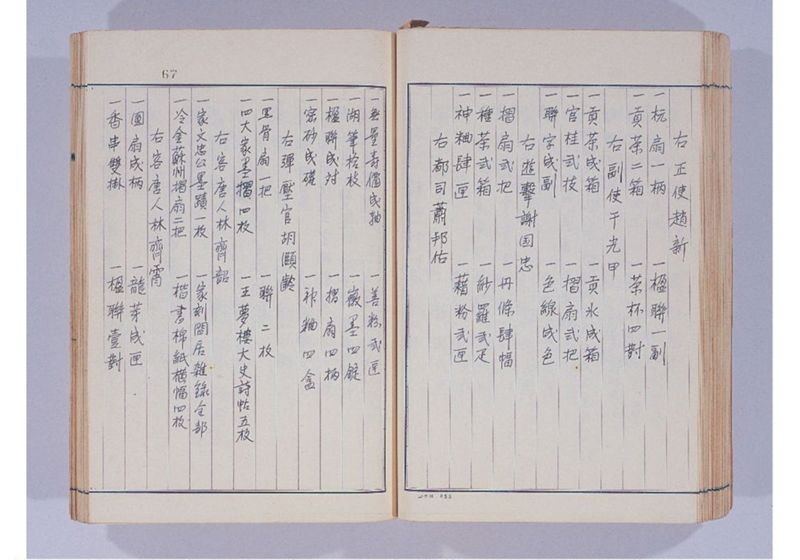 右正使趙新
一杬扇一柄 一楹聯一副
一貢茶二箱 一茶杯四對
右副使于光甲
一貢茶弍箱 一貢氷弍箱
一官桂弐枝 一摺扇弐把
一聯字弍副 一色線弍色
右遊擊謝国忠
一摺扇弐把 一丹條肆幅
一種茶弐箱 一紗羅弐疋
一神粬肆匣 一藕粉弐匣
右都司蕭邦佑
67
一無量寿儒弍軸 一善粉弐匣
一湖筆拾枝 一徽墨四錠
一楹聯弍対 一摺扇四柄
一宻砂弍礎 一神粬四盒
右彈壓官胡頤齡
一黑骨扇一把 一聯二枚
一四大家墨搨四枚 一王夢樓大史詩帖五枚
右客唐人林齊韶
一家文忠公墨蹟一枚 一家刻閩居雜錄全部
一冷金蘇州摺扇二把 一楷書棉紙橫幅四枚
右客唐人林齊霄
一團扇弍柄 一龍芽弍匣
一香串雙掛 一楹聯壹對